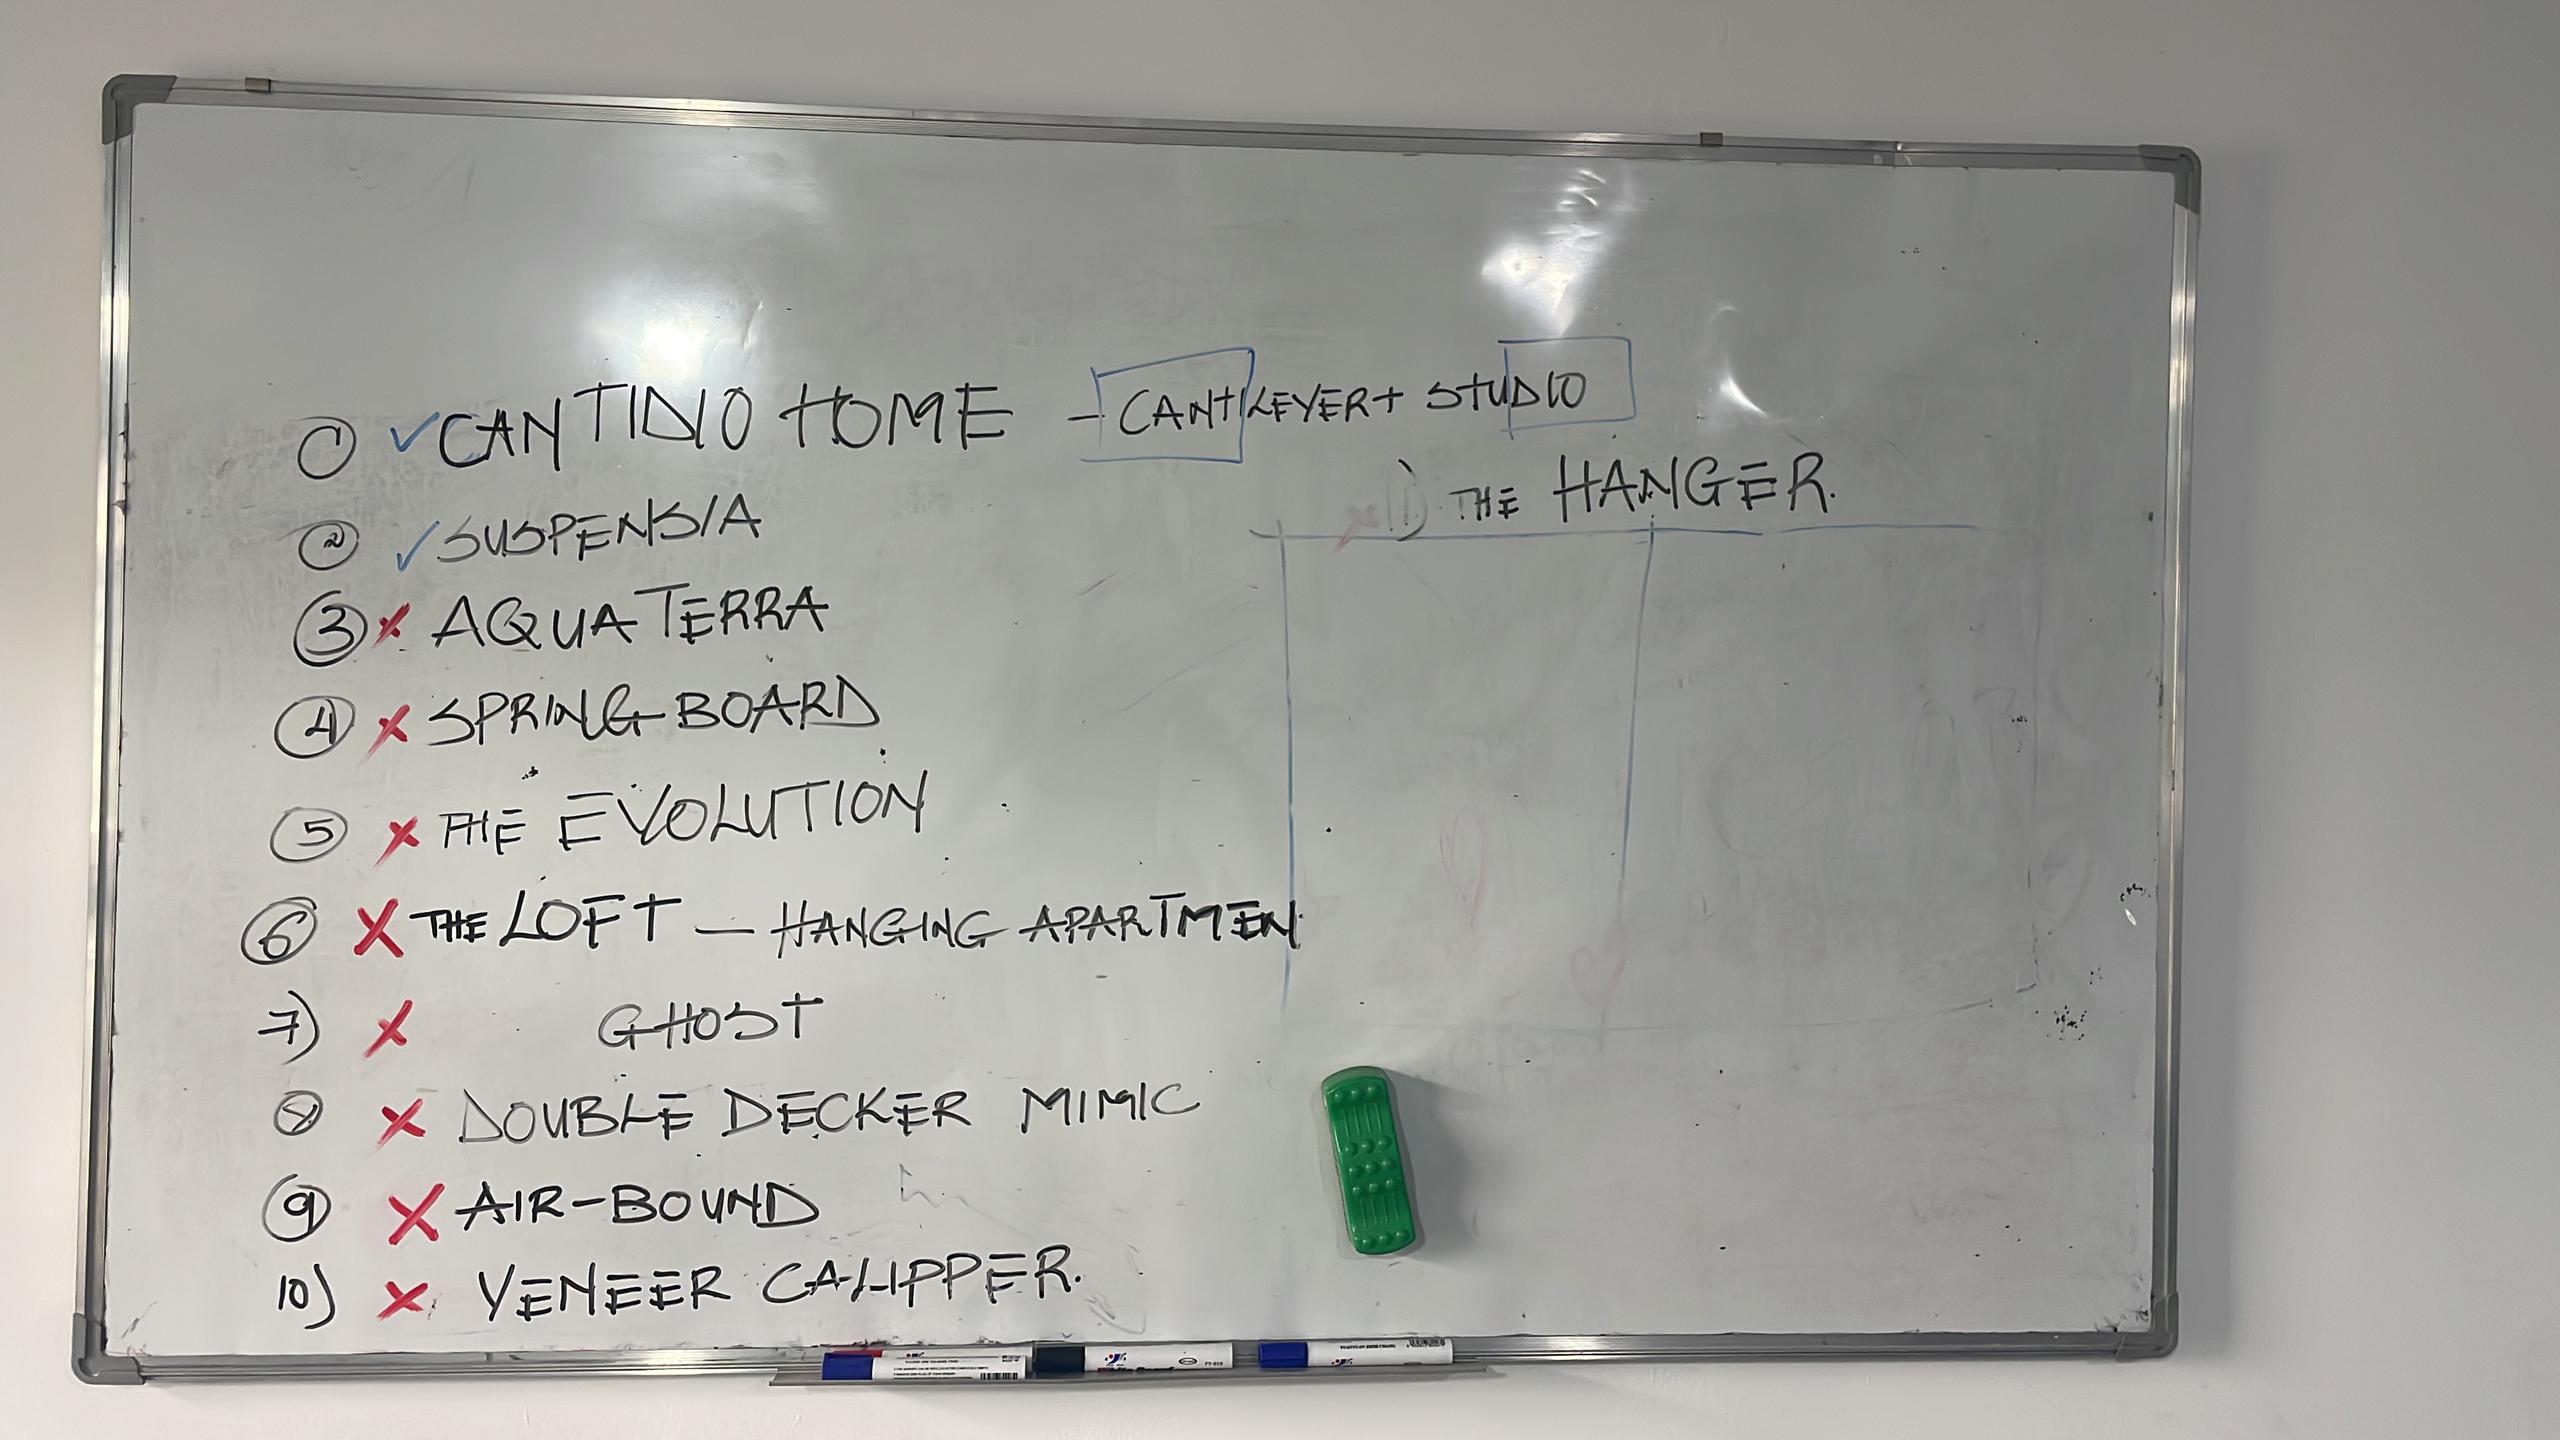 1 ✓ CANTIDIO HOME - CANTILEVER + STUDIO
2 ✓ SUSPENSIA
3 x AQUA TERRA
4 x SPRING BOARD
5 x THE EVOLUTION
6 x THE LOFT - HANGING APARTMEN
7) x GHOST
8 x DOUBLE DECKER MIMIC
9 x AIR-BOUND
10) x VENEER CALIPPER.
x 11) THE HANGER.